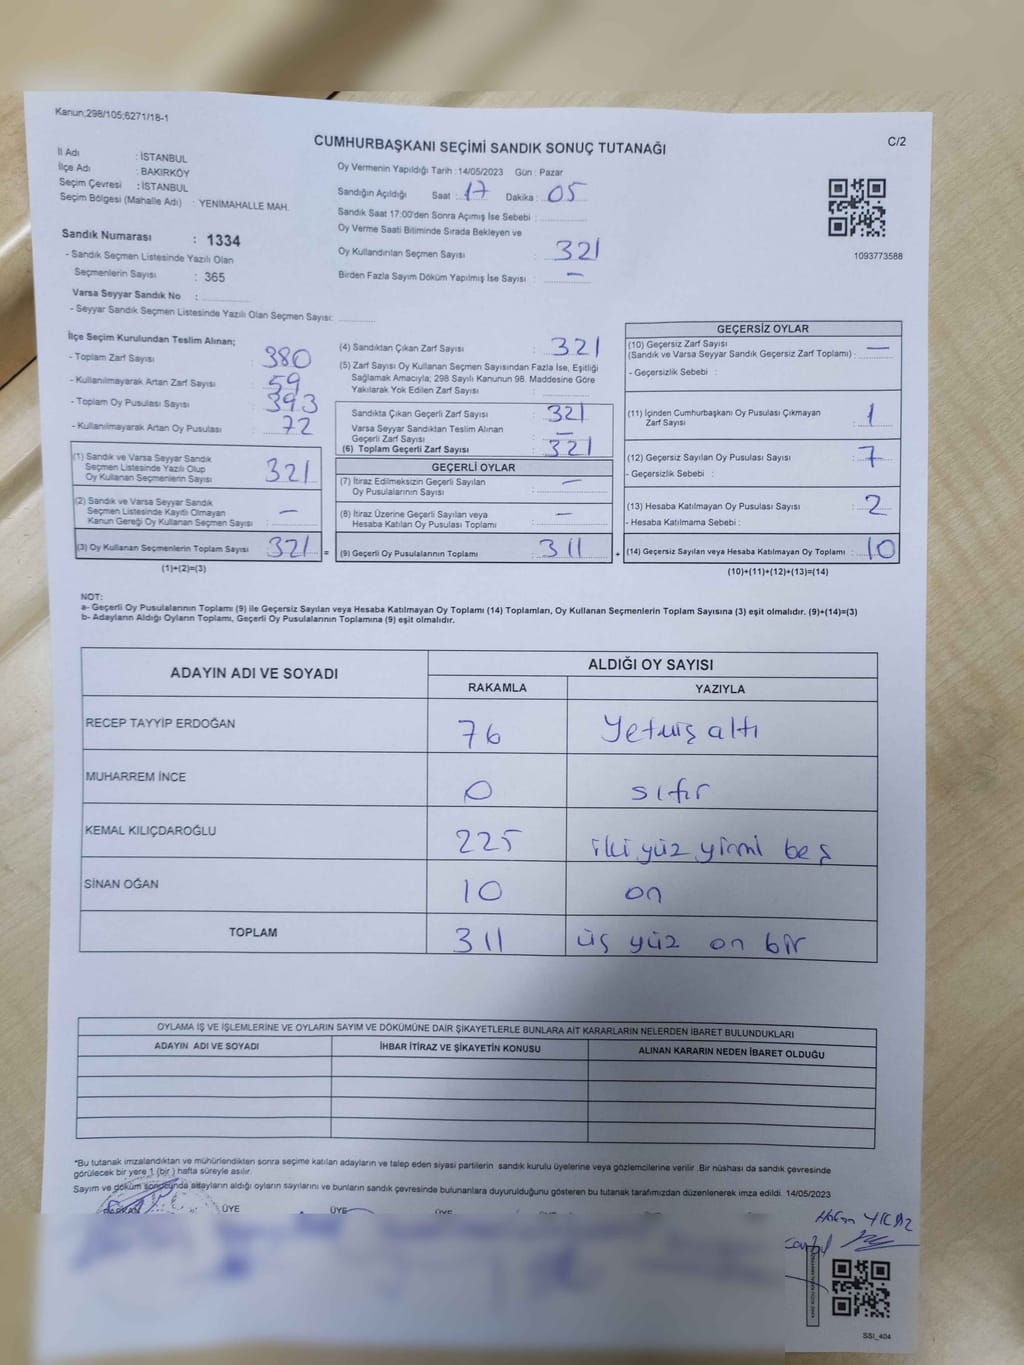 Kanun;298/105;6271/18-1
C/2
CUMHURBAŞKANI SEÇİMİ SANDIK SONUÇ TUTANAĞI
İl Adı : İSTANBUL
İlçe Adı : BAKIRKÖY
Seçim Çevresi : İSTANBUL
Seçim Bölgesi (Mahalle Adı) : YENİMAHALLE MAH.
Sandık Numarası : 1334
- Sandık Seçmen Listesinde Yazılı Olan
Seçmenlerin Sayısı : 365
Varsa Seyyar Sandık No :
- Seyyar Sandık Seçmen Listesinde Yazılı Olan Seçmen Sayısı:
Oy Vermenin Yapıldığı Tarih :14/05/2023 Gün : Pazar
Sandığın Açıldığı Saat : 17 Dakika : 05
Sandık Saat 17:00'den Sonra Açımış İse Sebebi :
Oy Verme Saati Bitiminde Sırada Bekleyen ve
Oy Kullandırılan Seçmen Sayısı : 321
Birden Fazla Sayım Döküm Yapılmış İse Sayısı : —
1093773588
İlçe Seçim Kurulundan Teslim Alınan;
- Toplam Zarf Sayısı : 380
- Kullanılmayarak Artan Zarf Sayısı : 59
- Toplam Oy Pusulası Sayısı : 393
- Kullanılmayarak Artan Oy Pusulası : 72
(1) Sandık ve Varsa Seyyar Sandık
Seçmen Listesinde Yazılı Olup
Oy Kullanan Seçmenlerin Sayısı : 321
(2) Sandık ve Varsa Seyyar Sandık
Seçmen Listesinde Kayıtlı Olmayan
Kanun Gereği Oy Kullanan Seçmen Sayısı : —
(3) Oy Kullanan Seçmenlerin Toplam Sayısı : 321 =
(1)+(2)=(3)
(4) Sandıktan Çıkan Zarf Sayısı : 321
(5) Zarf Sayısı Oy Kullanan Seçmen Sayısından Fazla İse, Eşitliği
Sağlamak Amacıyla; 298 Sayılı Kanunun 98. Maddesine Göre
Yakılarak Yok Edilen Zarf Sayısı :
Sandıkta Çıkan Geçerli Zarf Sayısı : 321
Varsa Seyyar Sandıktan Teslim Alınan
Geçerli Zarf Sayısı : —
(6) Toplam Geçerli Zarf Sayısı : 321
GEÇERLİ OYLAR
(7) İtiraz Edilmeksizin Geçerli Sayılan
Oy Pusulalarının Sayısı : —
(8) İtiraz Üzerine Geçerli Sayılan veya
Hesaba Katılan Oy Pusulası Toplamı : —
(9) Geçerli Oy Pusulalarının Toplamı : 311 +
GEÇERSİZ OYLAR
(10) Geçersiz Zarf Sayısı
(Sandık ve Varsa Seyyar Sandık Geçersiz Zarf Toplamı) : —
- Geçersizlik Sebebi :
(11) İçinden Cumhurbaşkanı Oy Pusulası Çıkmayan
Zarf Sayısı : 1
(12) Geçersiz Sayılan Oy Pusulası Sayısı : 7
- Geçersizlik Sebebi :
(13) Hesaba Katılmayan Oy Pusulası Sayısı : 2
- Hesaba Katılmama Sebebi :
(14) Geçersiz Sayılan veya Hesaba Katılmayan Oy Toplamı : 10
(10)+(11)+(12)+(13)=(14)
NOT:
a- Geçerli Oy Pusulalarının Toplamı (9) ile Geçersiz Sayılan veya Hesaba Katılmayan Oy Toplamı (14) Toplamları, Oy Kullanan Seçmenlerin Toplam Sayısına (3) eşit olmalıdır. (9)+(14)=(3)
b- Adayların Aldığı Oyların Toplamı, Geçerli Oy Pusulalarının Toplamına (9) eşit olmalıdır.
ADAYIN ADI VE SOYADI ALDIĞI OY SAYISI
RAKAMLA YAZIYLA
RECEP TAYYİP ERDOĞAN 76 Yetmiş altı
MUHARREM İNCE 0 sıfır
KEMAL KILIÇDAROĞLU 225 iki yüz yirmi beş
SİNAN OĞAN 10 on
TOPLAM 311 üç yüz on bir
OYLAMA İŞ VE İŞLEMLERİNE VE OYLARIN SAYIM VE DÖKÜMÜNE DAİR ŞİKAYETLERLE BUNLARA AİT KARARLARIN NELERDEN İBARET BULUNDUKLARI
ADAYIN ADI VE SOYADI İHBAR İTİRAZ VE ŞİKAYETİN KONUSU ALINAN KARARIN NEDEN İBARET OLDUĞU
*Bu tutanak imzalandıktan ve mühürlendikten sonra seçime katılan adayların ve talep eden siyasi partilerin sandık kurulu üyelerine veya gözlemcilerine verilir .Bir nüshası da sandık çevresinde
görülecek bir yere 1 (bir ) hafta süreyle asılır.
Sayım ve döküm sonucunda adayların aldığı oyların sayılarını ve bunların sandık çevresinde bulunanlara duyurulduğunu gösteren bu tutanak tarafımızdan düzenlenerek imza edildi. 14/05/2023
BAŞKAN ÜYE ÜYE ÜYE ÜYE
SSI_404